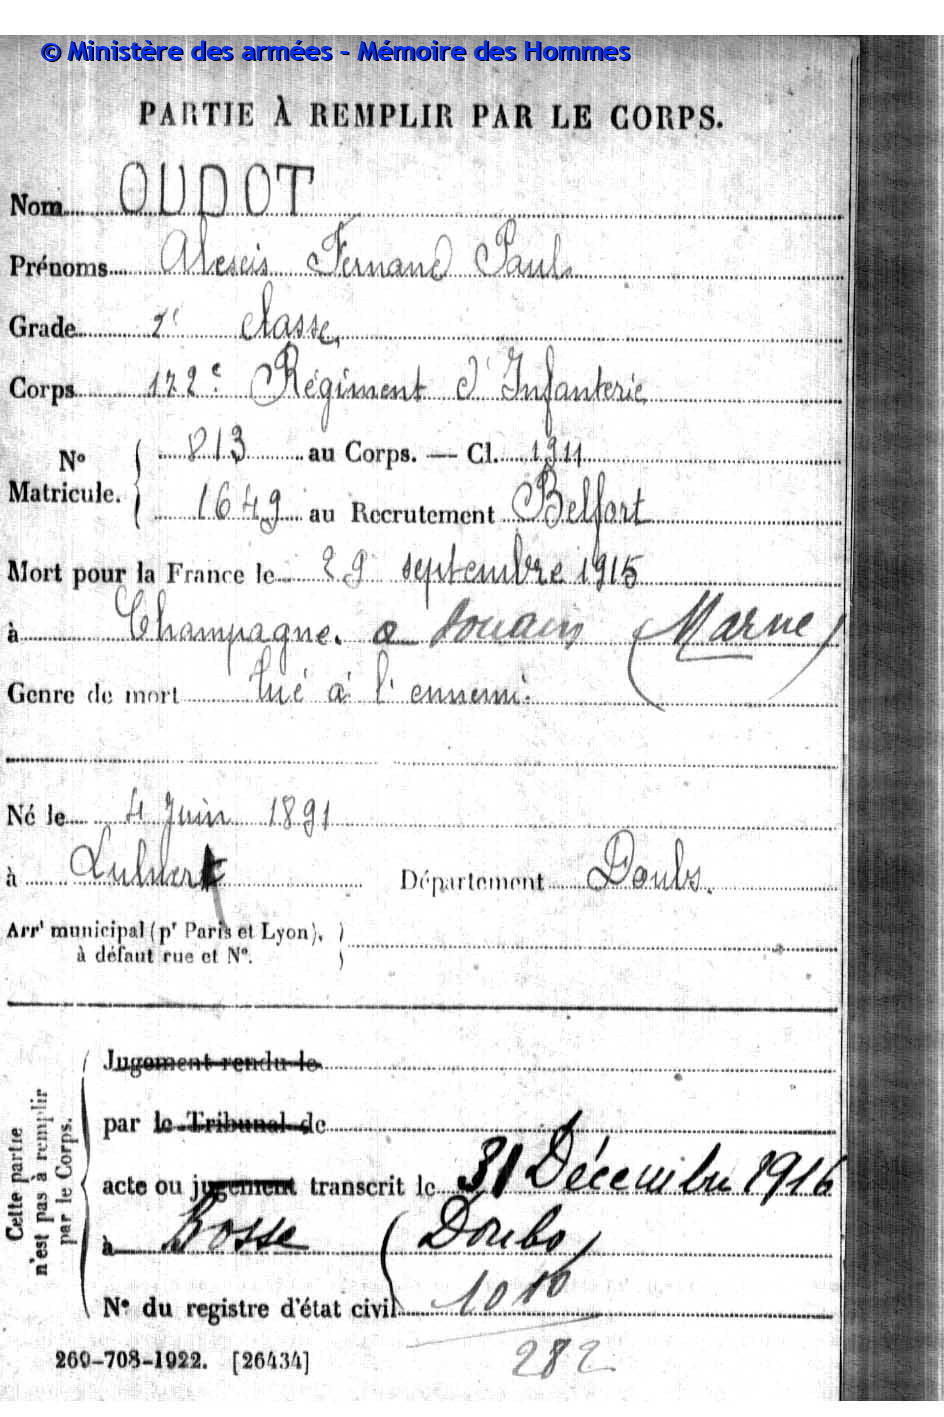 © Ministère des armées - Mémoire des Hommes
PARTIE À REMPLIR PAR LE CORPS.
Nom OUDOT
Prénoms Alexis Fernand Paul
Grade 2e classe
Corps 172e Régiment d'Infanterie
N° Matricule. 813 au Corps. — Cl. 1911
1649 au Recrutement Belfort
Mort pour la France le 29 septembre 1915
à Champagne. a Souain (Marne)
Genre de mort tué à l'ennemi.
Né le 4 Juin 1891
à Département Doubs.
Arrt municipal (pr Paris et Lyon),
à défaut rue et N°.
Cette partie n'est pas à remplir par le Corps.
Jugement rendu le
par le Tribunal de
acte ou jugement transcrit le 31 Décembre 1916
à Bosse (Doubs)
N° du registre d'état civil 10 10
282
260-708-1922. [26434]